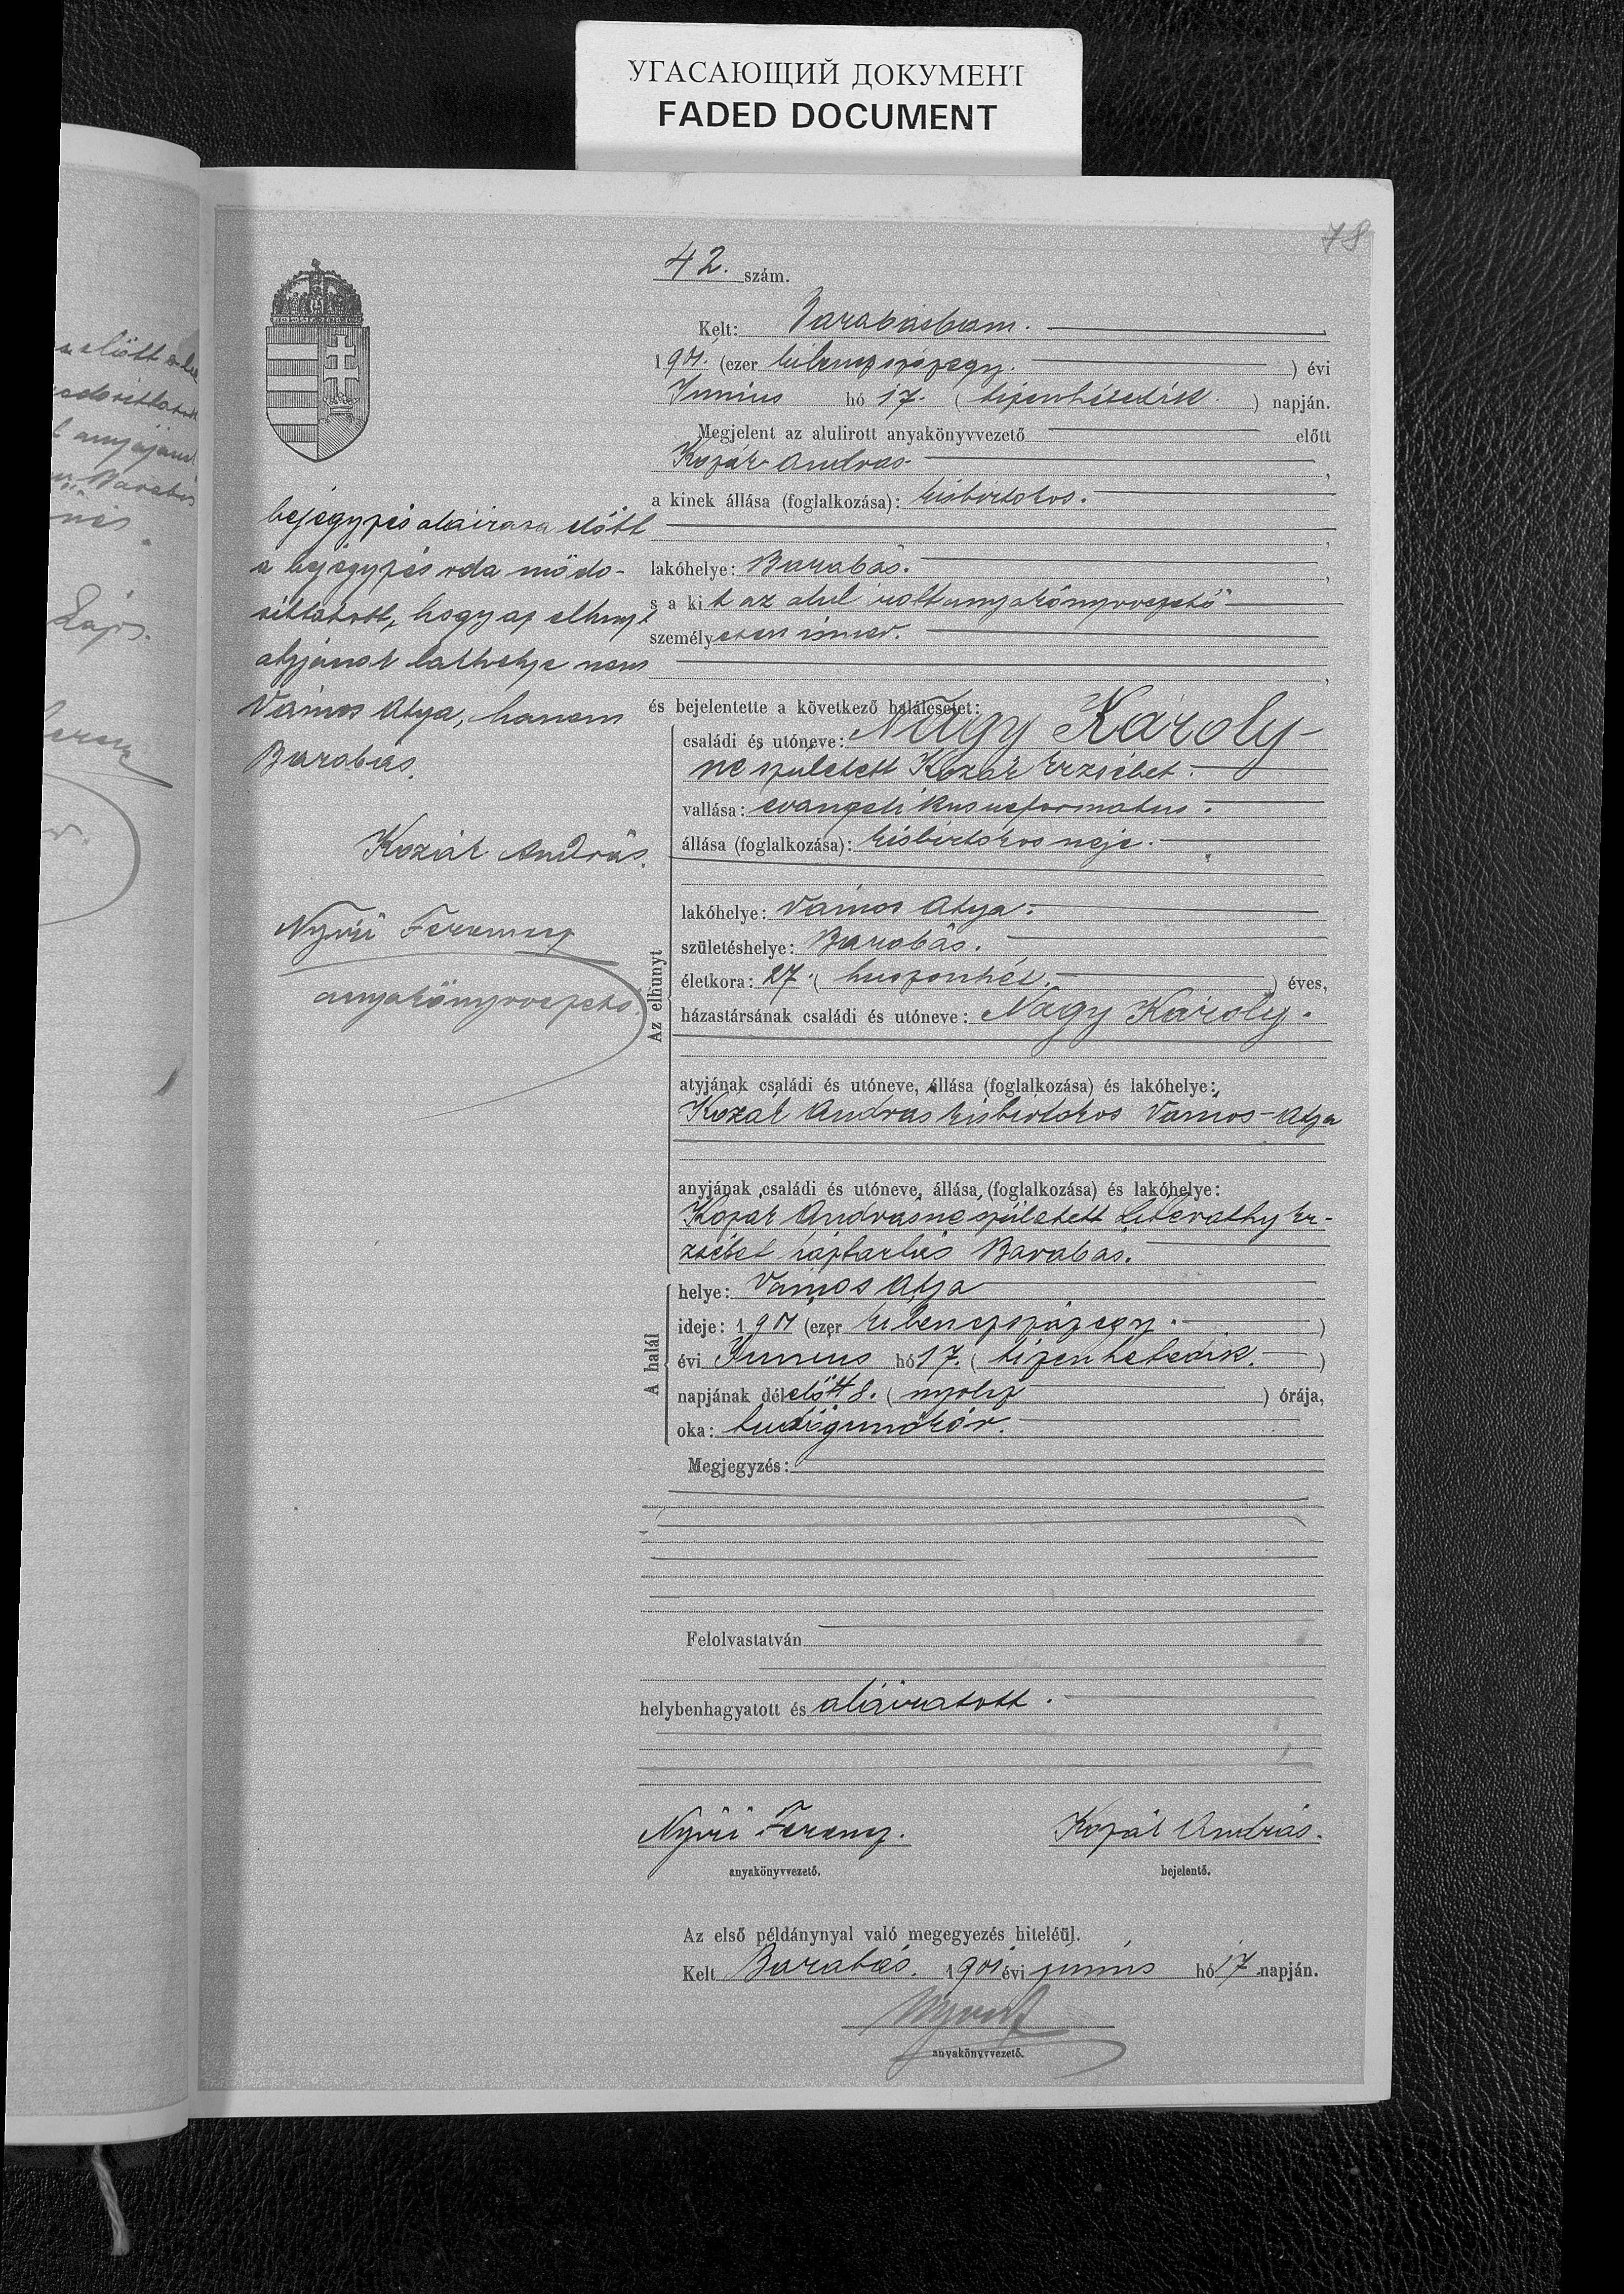 УГАСАЮЩИЙ ДОКУМЕНТ
FADED DOCUMENT
78
42. szám.
Kelt: Barabásbam.
1901. (ezer kilenczszázegy.) évi
Junius hó 17. (tizenhetedik.) napján.
Megjelent az alulirott anyakönyvvezető előtt
Kozár András
a kinek állása (foglalkozása): kisbirtokos.
lakóhelye: Barabás.
s a kit az alul irott anyakönyvvezető
személyesen ismer.
és bejelentette a következő halálesetet:
Az elhunyt
családi és utóneve: Nagy Károly-
né született Kozár Erzsébet.
vallása: evangelikus reformatus.
állása (foglalkozása): kisbirtokos neje.
lakóhelye: Vámos Atya.
születéshelye: Barabás.
életkora: 27. (huszonhét.) éves,
házastársának családi és utóneve: Nagy Károly.
atyjának családi és utóneve, állása (foglalkozása) és lakóhelye:
Kozár András kisbirtokos Vámos-Atya
anyjának családi és utóneve, állása (foglalkozása) és lakóhelye:
Kozár Andrásné született Literáthy Er-
zsébet háztartás Barabás.
A halál
helye: Vámos Atya
ideje: 1901 (ezer kilenczszázegy.)
évi Junius hó 17. (tizenhetedik.)
napjának délelőtt 8. (nyolcz) órája,
oka: tüdőgümőkór.
Megjegyzés:
Felolvastatván
helybenhagyatott és aláiratott.
Nyiri Ferencz.
anyakönyvvezető.
Kozár András.
bejelentő.
Az első példánynyal való megegyezés hiteléül.
Kelt Barabás. 1901 évi junius hó 17 napján.
anyakönyvvezető.
bejegyzés aláirása előtt
a bejegyzés oda módo-
sittatott, hogy az elhunyt
atyjának lakhelye nem
Vámos Atya, hanem
Barabás.
Kozár András.
Nyiri Ferencz
anyakönyvvezető.
előtt a be
anyjának
Barabás
Lajos.